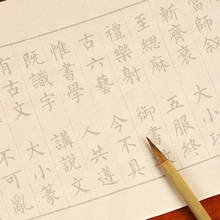 斬齊衰
至緦麻 五服終
禮樂射 御書
古六藝 今不具
惟書學 人共遵
既識字 講說文
有古文 大小篆
不可亂